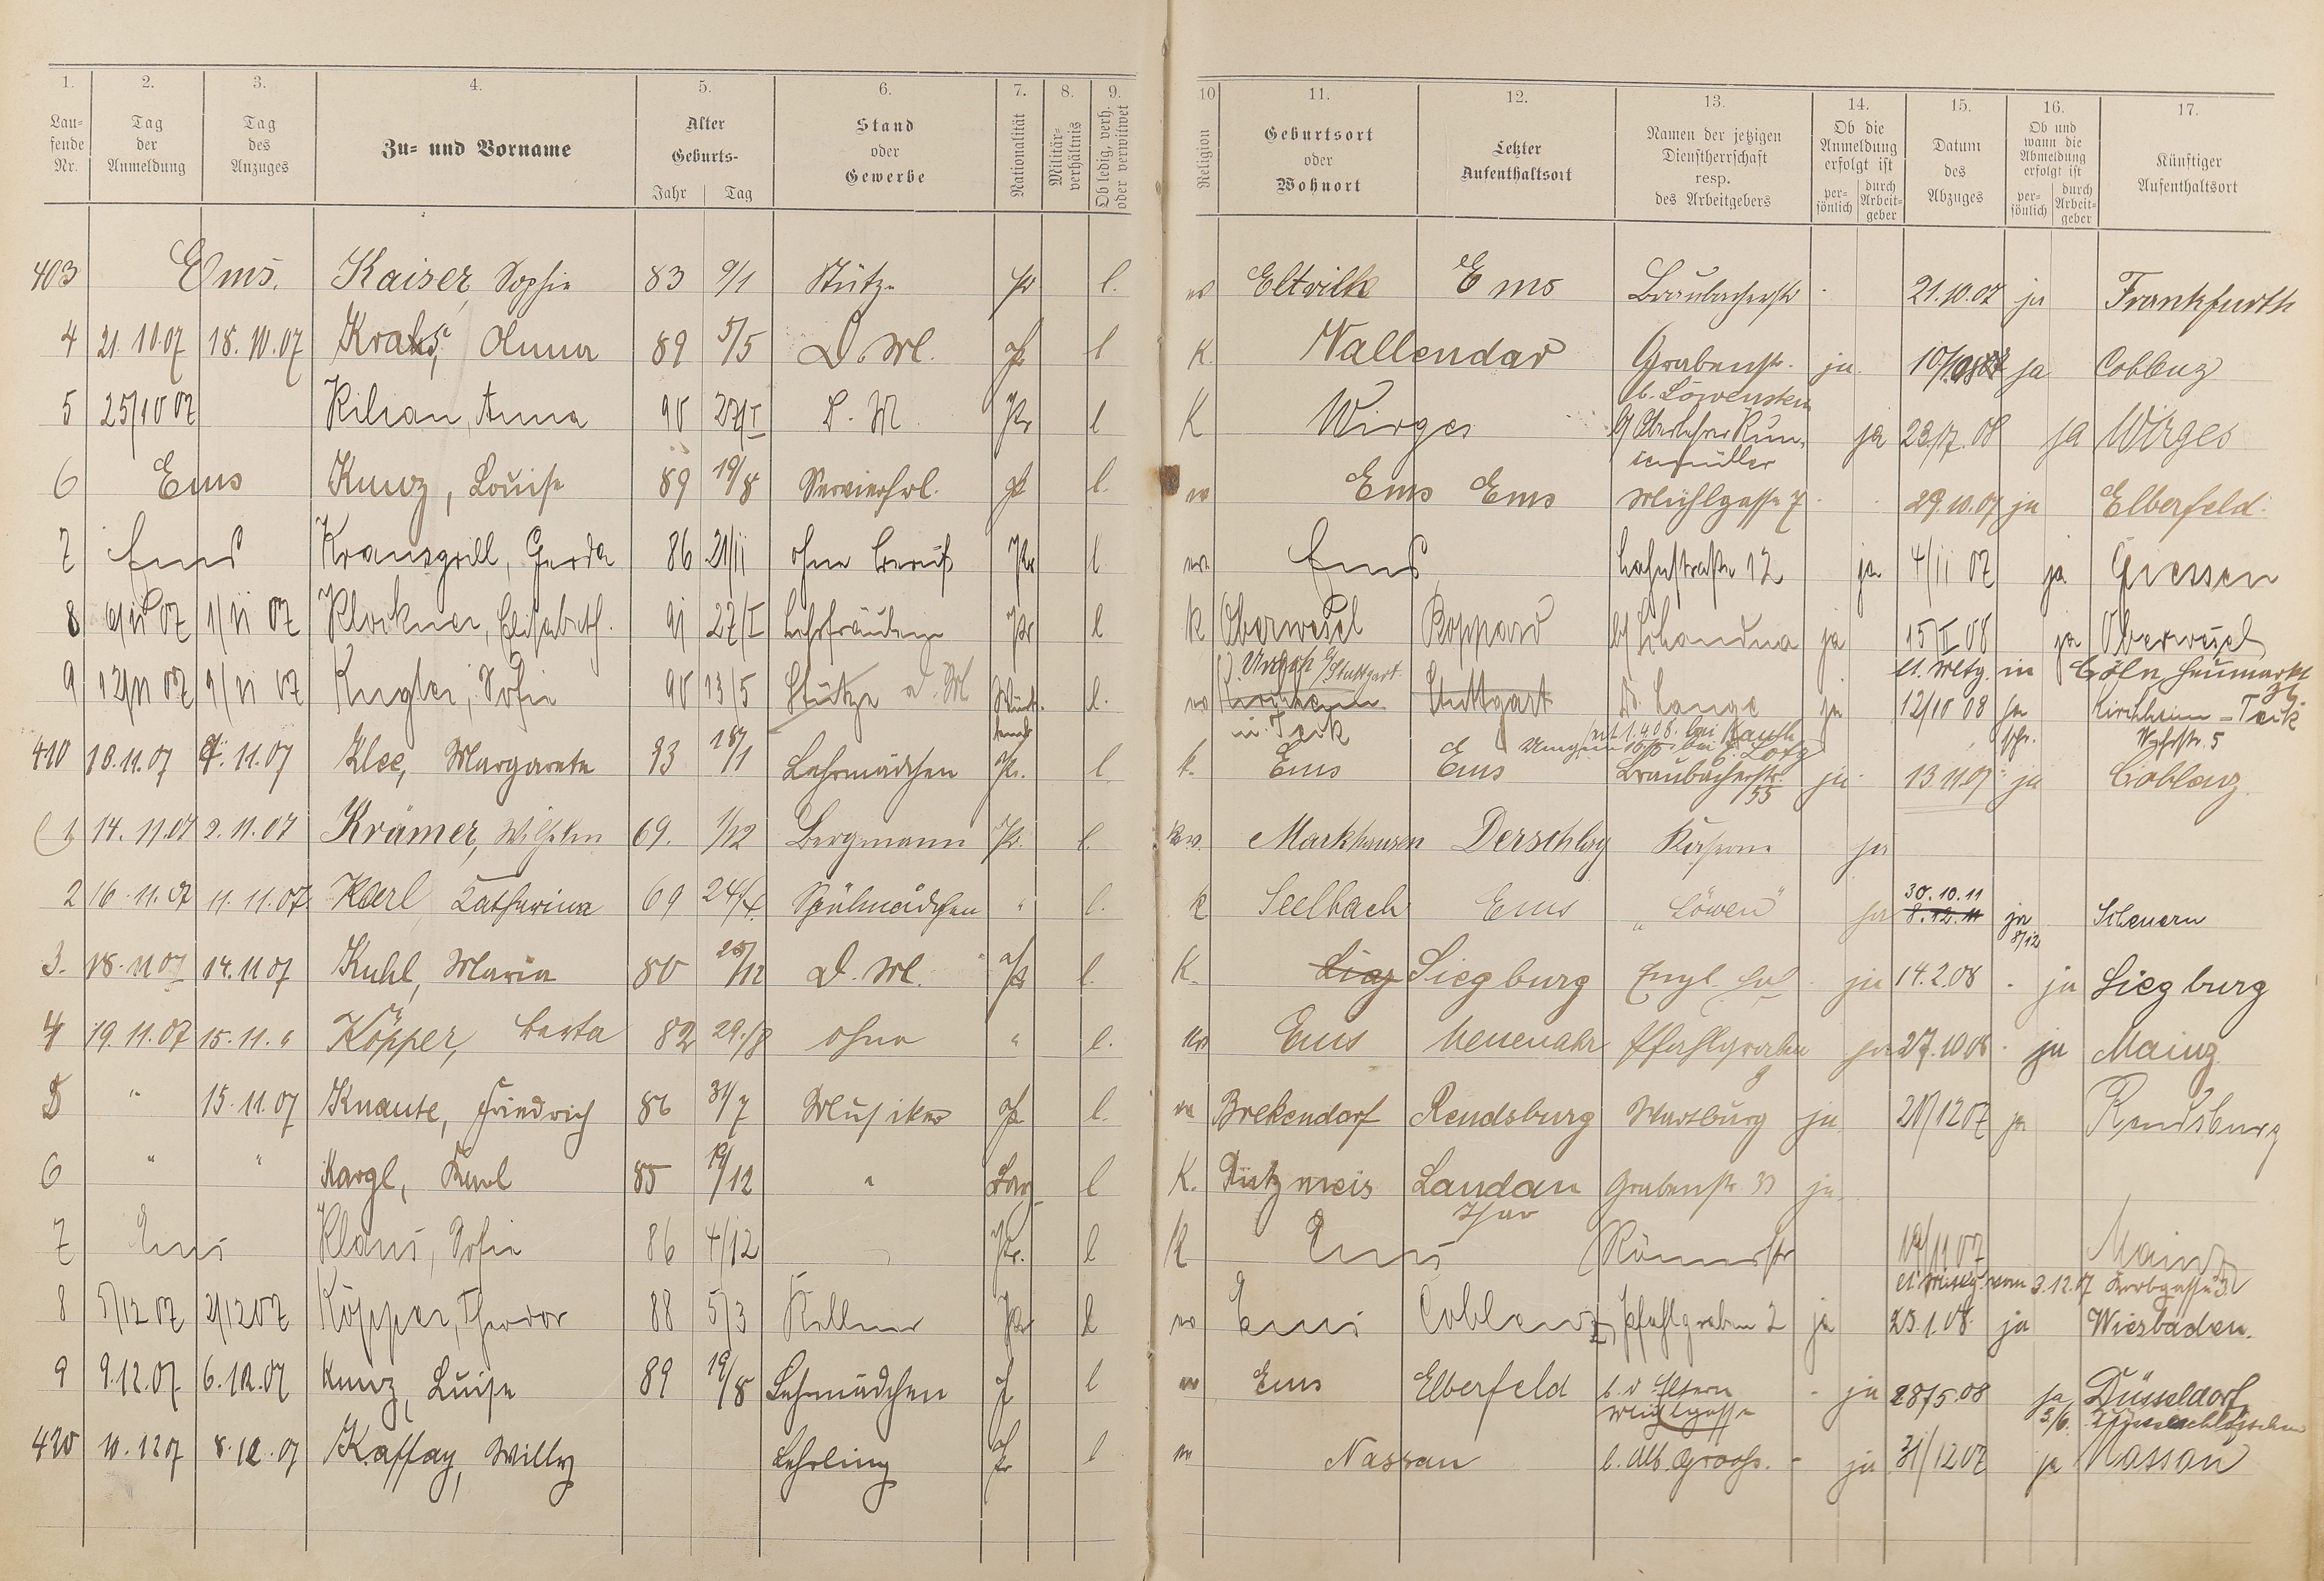 1. 2. 3. 4. 5. 6. 7. 8. 9. 10 11. 12. 13. 14. 15. 16. 17.
Lau=fende Nr. | Tag der Anmeldung | Tag des Anzuges | Zu= und Vorname | Alter Geburts- Jahr Tag | Stand oder Gewerbe | Nationalität | Militär=verhältnis | Ob ledig, verh. oder verwitwet | Religion | Geburtsort oder Wohnort | Letzter Aufenthaltsort | Namen der jetzigen Dienstherrschaft resp. des Arbeitgebers | Ob die Anmeldung erfolgt ist per=sönlich durch Arbeit=geber | Datum des Abzuges | Ob und wann die Abmeldung erfolgt ist per=sönlich durch Arbeit=geber | Künftiger Aufenthaltsort
403 Ems. Kaiser, Sophie 83 9/1 Stütze Pr l. ev Eltville Ems Braubacherstr - 21.10.07 ja Frankfurth
4 21.10.07 18.10.07 Anna 89 5/5 D. M. Pr l K. Vallendar Grabenstr. ja ja Coblenz
b. Löwenstein
5 25/10 07 Kilian, Anna 90 27/I D. M. Pr l K Wirges Oberlehrer ja 23/7.08 ja Wirges
6 Ems Kunz, Louise 89 19/8 Servierfrl. Pr l. ev Ems Ems Mühlgasse 7 - 29.10.07 ja Elberfeld.
7 Ems Kransgrill, Gerda 86 21/11 ohne Beruf Pr l. ev. Ems Lahnstraße 12 ja 4/11 07 ja Giessen
8 6/11 07 1/11 07 Klockner, Elisabeth. 91 27/I Lehrfräulein Pr l k Oberwesel Boppard ja 15/II 08 ja Oberwesel
Urach b/Stuttgart. lt. Mttg. in Cöln Heumarkt
9 12/11 07 1/11 07 Kugler, Sofie 90 13/5 Stütze D. M Würt. l. ev Kirchheim Stuttgart Dr. Lange ja 12/10 08 ja Kirchheim - Teck
u. Teck seit 1.4.08. bei Kauth
410 18.11.07 11.07 Klee, Margarete 93 18/1 Lehrmädchen Pr. l k. Ems Ems Braubacherstr. 55 ja. 13.11.07 ja Coblenz
1 14.11.07 2.11.07 Krämer, Wilhelm 69. 1/12 Bergmann Pr. l. ev. Markhausen Derschlag Kaserne ja
2 16.11.07 11.11.07 Karl Katharina 69 24/4. Spülmädchen " l. k Seelbach Ems "Löwen" ja 30.10.11 8.12.11 ja 8/12 Scheuern
3. 18.11 07 14.11 07 Kuhl, Maria 80 25/12 D. M. Pr l. K. Sieg Siegburg Engl. Hof ja 14.2.08 - ja Siegburg
4 19.11.07 15.11. " Köpper, Berta 82 29./8 ohne " l. ev Ems Neuenahr Pfahlgraben ja 27.10 08 - ja Mainz
5 " 15.11.07 Knaute, Friedrich 86 31/7 Musiker Pr l. ev Brekendorf Rendsburg Wartburg ja 20/12 07 ja Rendsburg
6 " " Kargl, Karl 85 19/12 " Bay. l K. Landau Grabenstr 33 ja.
Isar
7 Ems Klaus, Sofie 86 4/12 Pr. l K Ems Römerstr 19/11 07 Mainz
lt. Mitteilg. vom 3.12.07 Korbgasse 3.
8 5/12 07 2/12 07 Köpper, Theodor 88 5/3 Kellner Pr l ev Ems Coblenz Pfahlgraben 2 ja 25.1.08. ja Wiesbaden.
9 9.12.07. 6.12.07 Kunz, Luise 89 19/8 Lehrmädchen Pr l ev Ems Elberfeld b. d Eltern Mühlgasse - ja 28/5.08 ja 3/6. Düsseldorf,
420 10.12 07 8.12.07 Kaffay, Willy Lehrling Pr l ev Nassau b. Alb. Groohs. - ja 31/12 07 ja Nassau